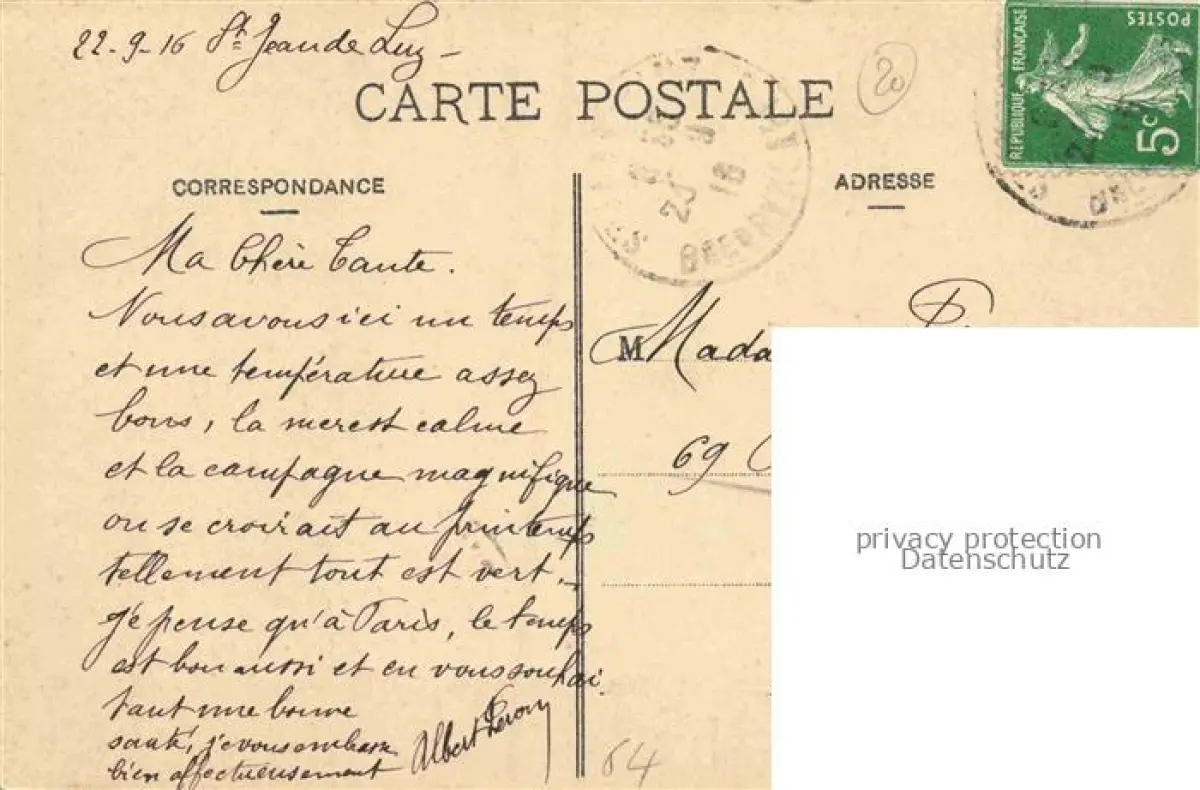 22-9-16 St Jean de Luz -
CARTE POSTALE
20
RÉPUBLIQUE FRANÇAISE
POSTES
5c
CORRESPONDANCE
ADRESSE
Ma Chère Tante.
Nous avons ici un temps
et une température assez
bons, la mer est calme
et la campagne magnifique
on se croirait au printemps
tellement tout est vert.
Je pense qu'à Paris, le temps
est bon aussi et en vous souhai.
tant une bonne
santé, je vous embrasse
bien affectueusement
Albert
M Mada
69
64
privacy protection
Datenschutz